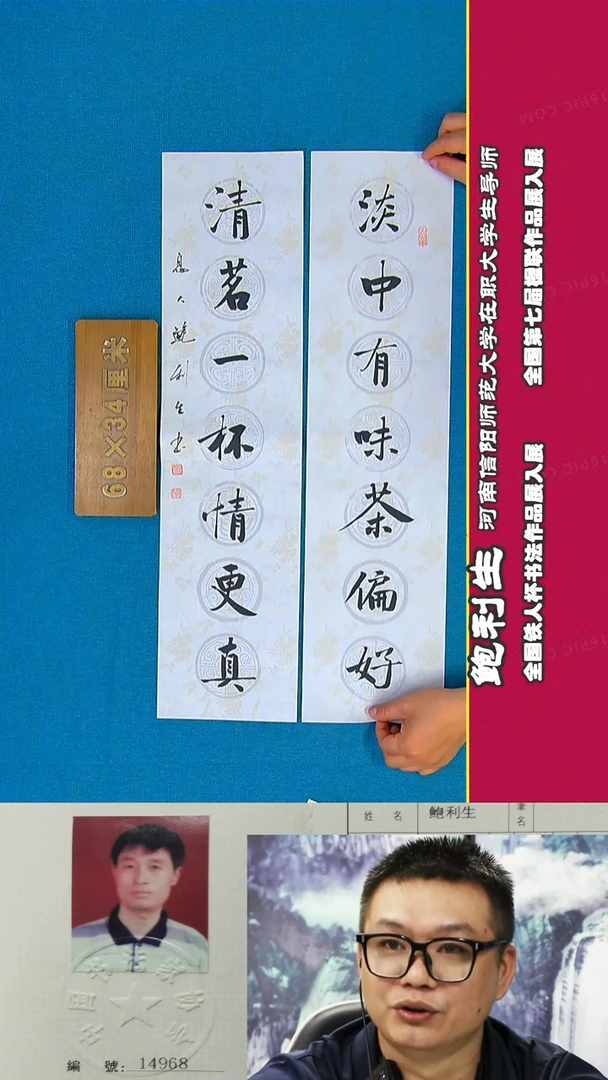 淡中有味茶偏好
清茗一杯情更真
息人鲍利生书
68×34厘米
鲍利生 河南信阳师范大学在职大学生导师
全国铁人杯书法作品展入展 全国第七届楹联作品展入展
姓 名 鲍利生 筆名
編 號: 14968